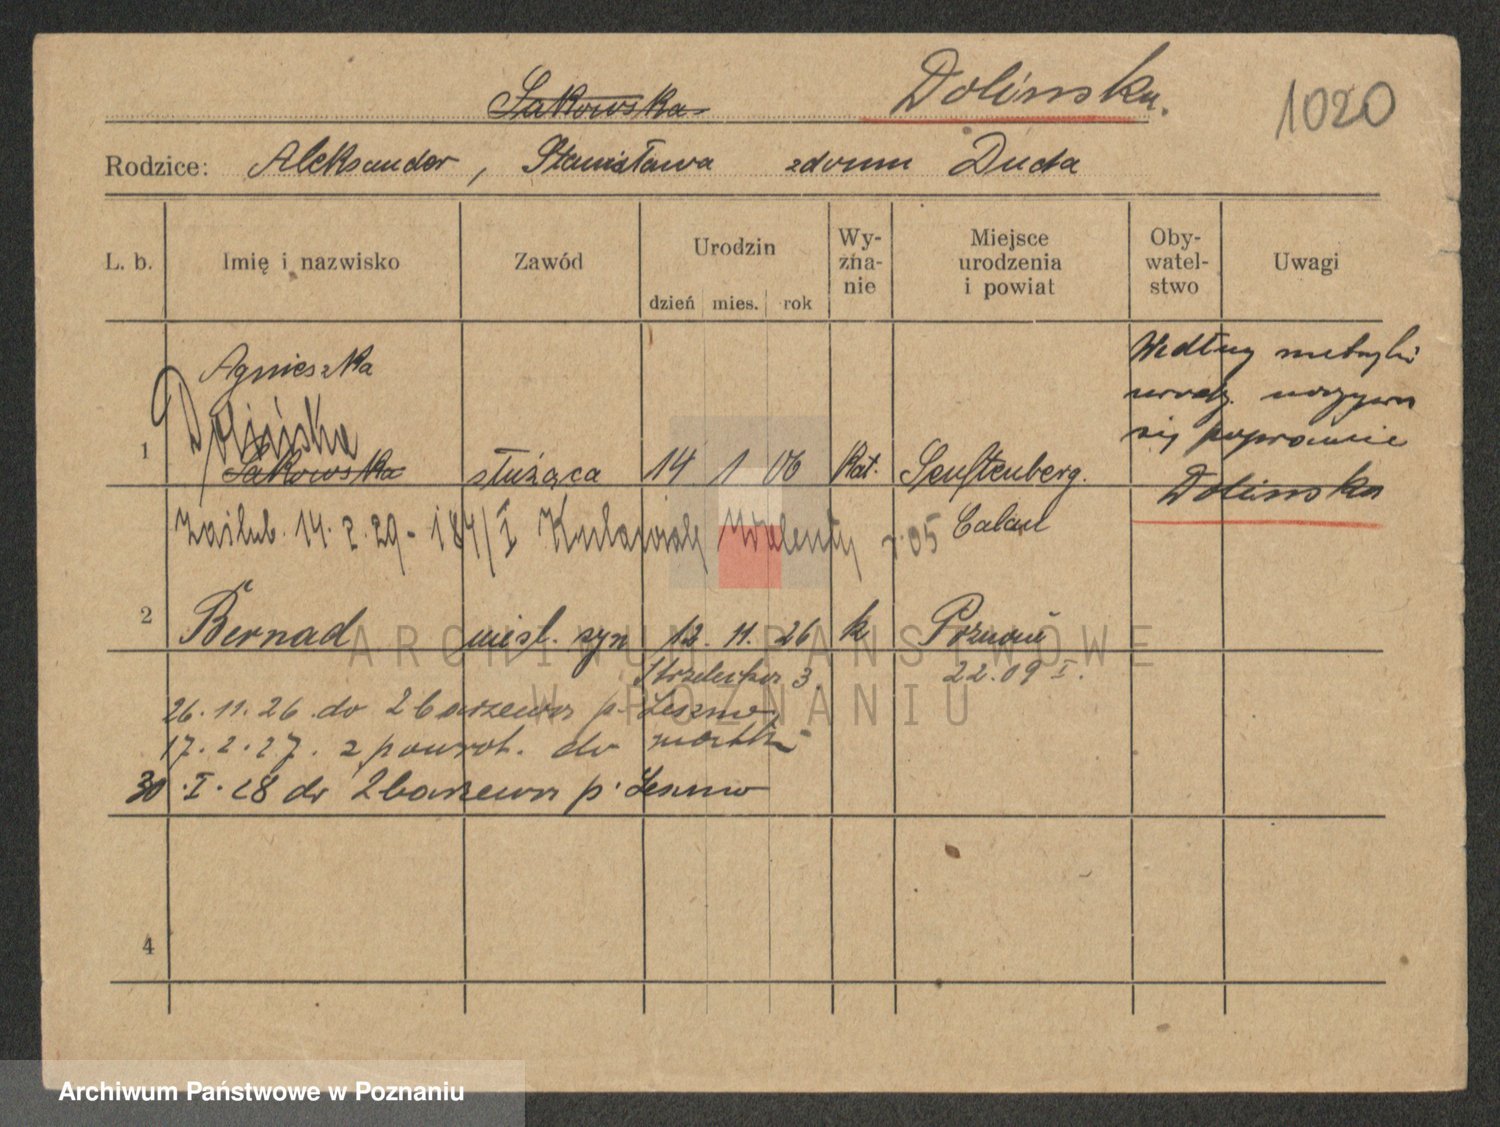 Sakowska Dolińska. 1020
Rodzice: Aleksander, Stanisława zdomu Duda
L. b. Imię i nazwisko Zawód Urodzin dzień mies. rok Wyzna-nie Miejsce urodzenia i powiat Oby-watel-stwo Uwagi
Agnieszka
Według metryki
urodz. nazywa
się poprawnie
Dolińska
1 Dolińska
Sakowska służąca 14 1 06 kat. Senftenberg.
Calau
Dolinska
Zaślub. 14. 2. 29 - 184/I Walenty r. 05
2 Bernad nieśl. syn 12. 11. 26 k Poznań
Strzelecka 3. 22.09 I.
26. 11. 26 do Zbarzewa p. Leszno
17. 2. 27. z powrot. do matki
30. I. 28 do Zbarzewa p. Leszno
4
ARCHIWUM PAŃSTWOWE
W POZNANIU
Archiwum Państwowe w Poznaniu